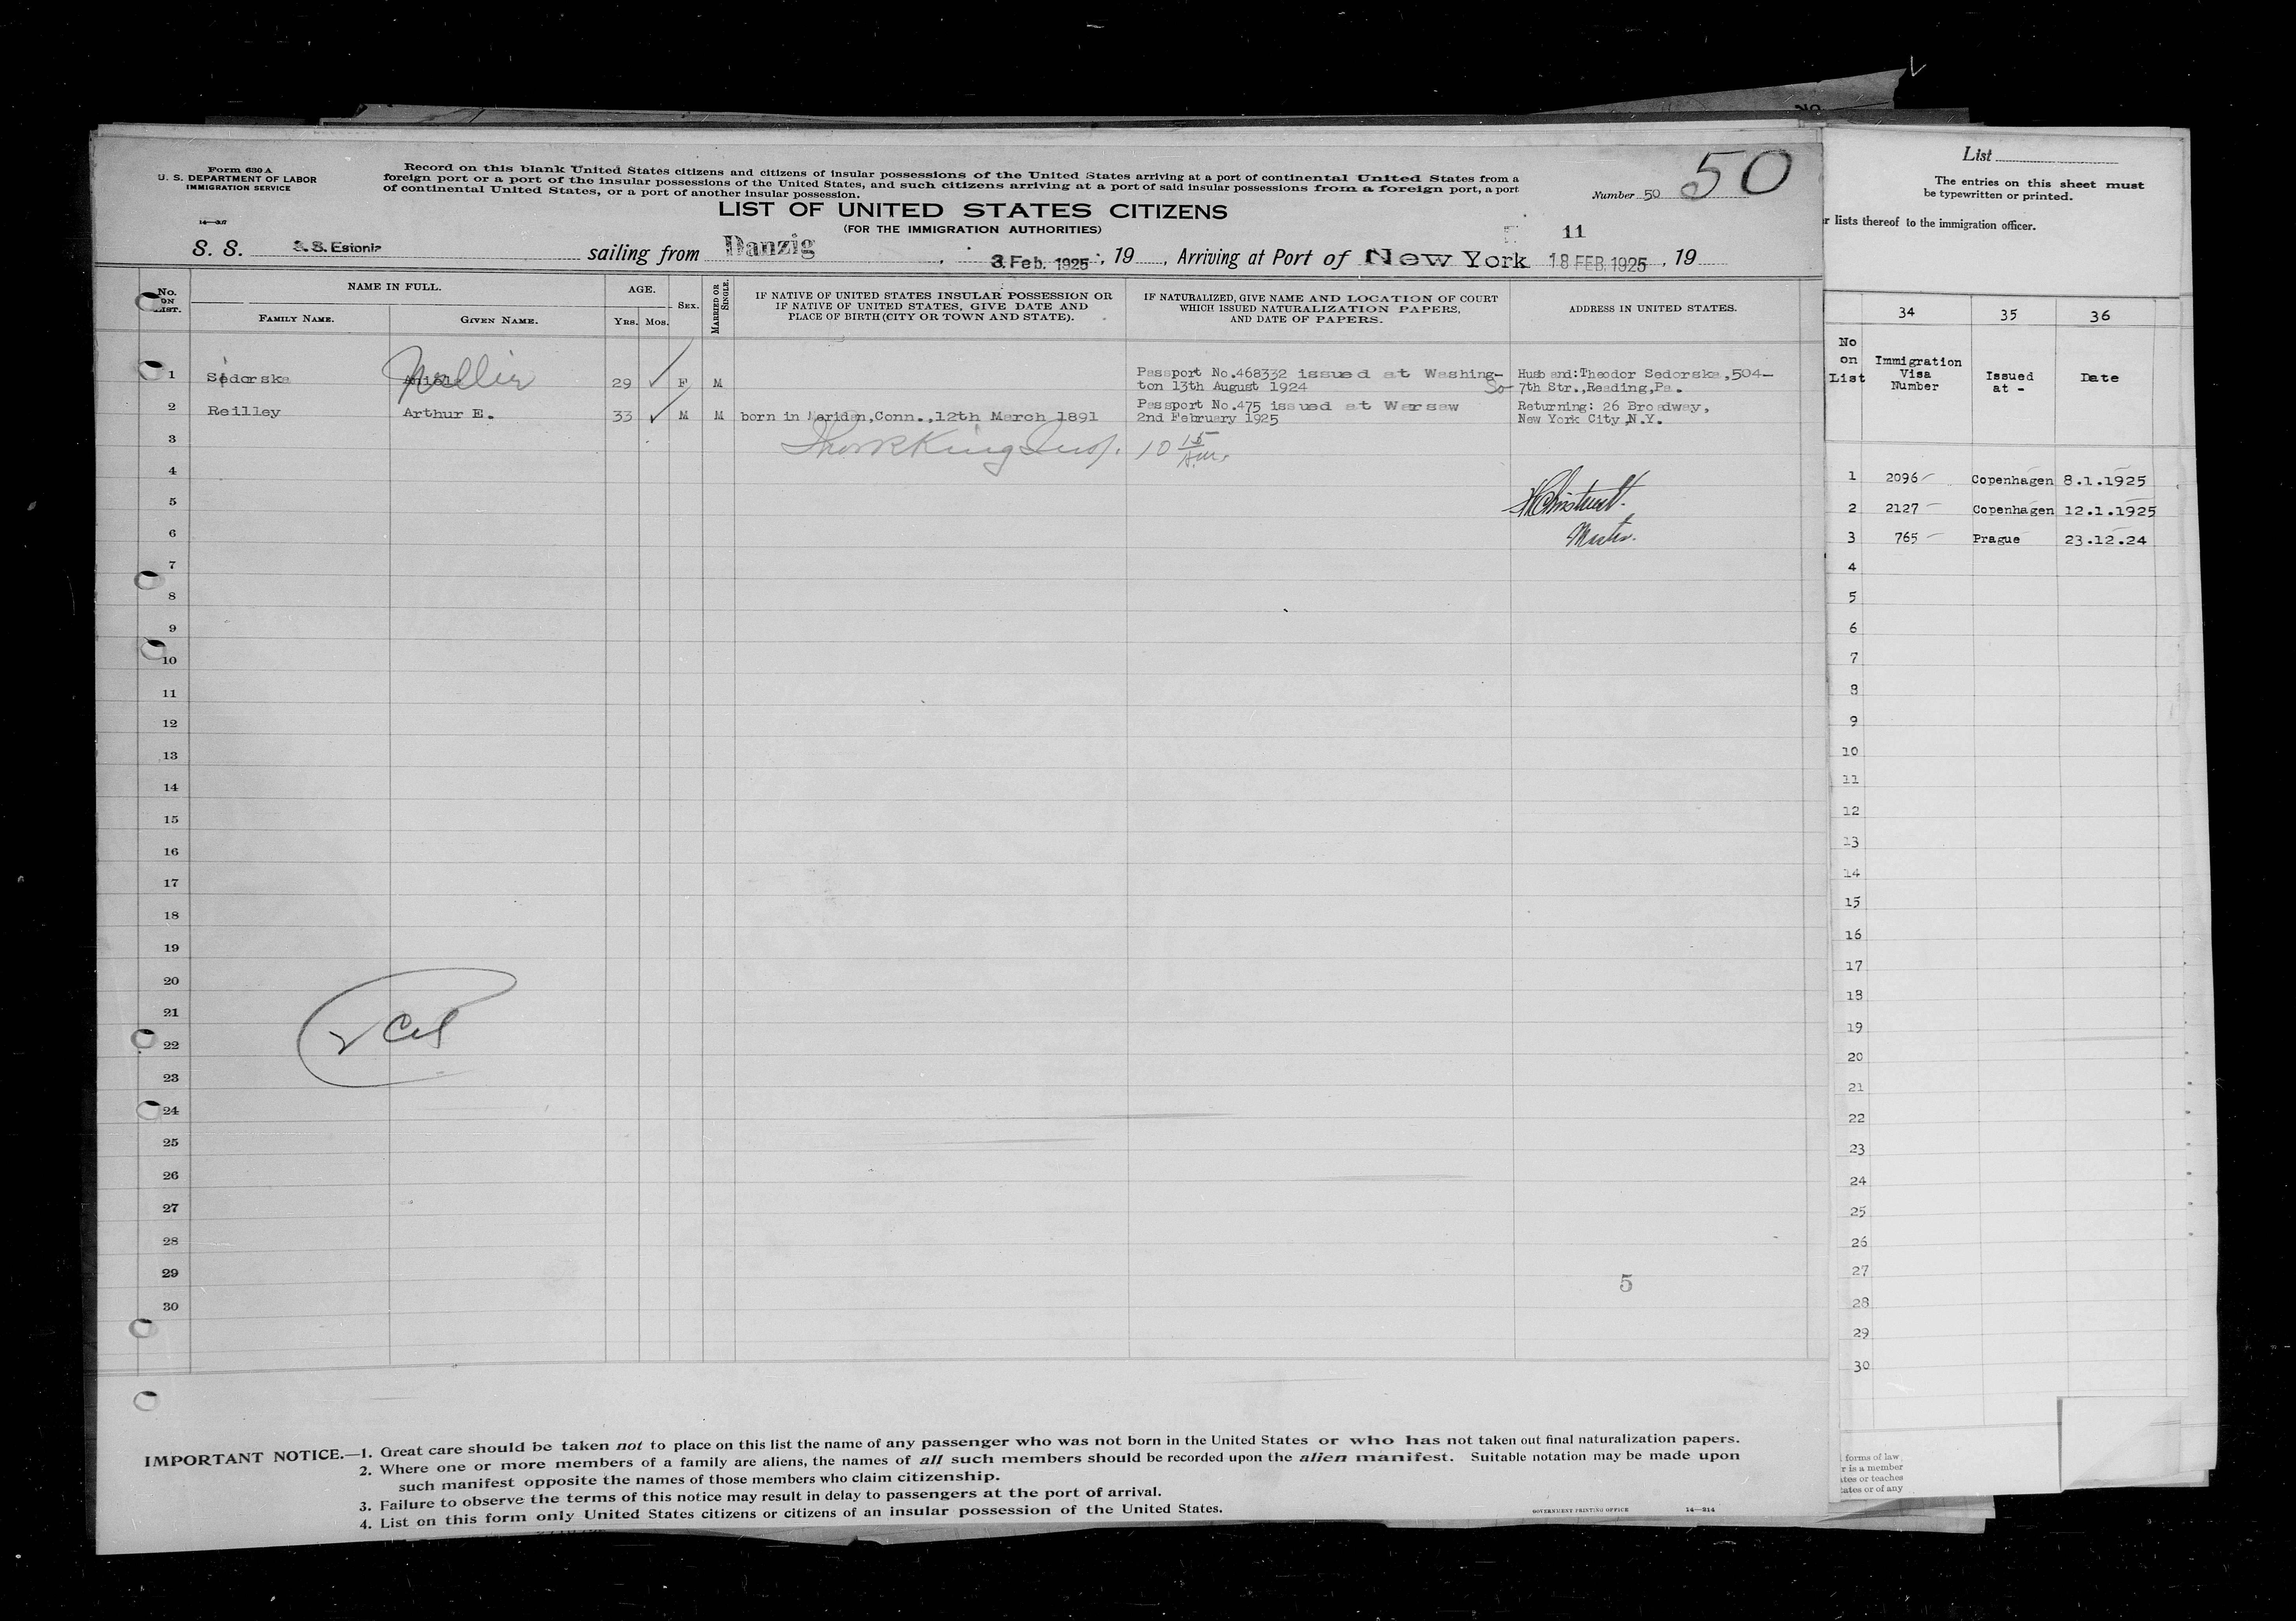 Form 630 A
U. S. DEPARTMENT OF LABOR
IMMIGRATION SERVICE
Record on this blank United States citizens and citizens of insular possessions of the United States arriving at a port of continental United States from a
foreign port or a port of the insular possessions of the United States, and such citizens arriving at a port of said insular possessions from a foreign port, a port
of continental United States, or a port of another insular possession.
Number 50 50
LIST OF UNITED STATES CITIZENS
(FOR THE IMMIGRATION AUTHORITIES)
11
S. S. S.S. Estonia sailing from Danzig, 3. Feb. 1925, 19, Arriving at Port of New York 18 FEB. 1925, 19
No. ON LIST.
NAME IN FULL.
FAMILY NAME.
GIVEN NAME.
AGE.
YRS. MOS.
SEX.
MARRIED OR SINGLE.
IF NATIVE OF UNITED STATES INSULAR POSSESSION OR
IF NATIVE OF UNITED STATES, GIVE DATE AND
PLACE OF BIRTH (CITY OR TOWN AND STATE).
IF NATURALIZED, GIVE NAME AND LOCATION OF COURT
WHICH ISSUED NATURALIZATION PAPERS,
AND DATE OF PAPERS.
ADDRESS IN UNITED STATES.
1 Sedorska Nellie 29 F M
Passport No.468332 issued at Washing-
ton 13th August 1924
Husband:Theodor Sedorska,504-
So 7th Str.,Reading,Pa.
2 Reilley Arthur E. 33 M M born in Meriden,Conn.,12th March 1891
Passport No.475 issued at Warsaw
2nd February 1925
Returning: 26 Broadway,
New York City,N.Y.
3
King Insp. 10 15 A.M.
4
5
6
Master.
7
8
9
10
11
12
13
14
15
16
17
18
19
20
21
22
23
24
25
26
27
28
29
30
5
IMPORTANT NOTICE.—1. Great care should be taken not to place on this list the name of any passenger who was not born in the United States or who has not taken out final naturalization papers.
2. Where one or more members of a family are aliens, the names of all such members should be recorded upon the alien manifest. Suitable notation may be made upon
such manifest opposite the names of those members who claim citizenship.
3. Failure to observe the terms of this notice may result in delay to passengers at the port of arrival.
4. List on this form only United States citizens or citizens of an insular possession of the United States.
GOVERNMENT PRINTING OFFICE 14—314
List
The entries on this sheet must
be typewritten or printed.
r lists thereof to the immigration officer.
34 35 36
No on List
Immigration Visa Number
Issued at -
Date
1 2096 Copenhagen 8.1.1925
2 2127 Copenhagen 12.1.1925
3 765 Prague 23.12.24
4
5
6
7
8
9
10
11
12
13
14
15
16
17
18
19
20
21
22
23
24
25
26
27
28
29
30
forms of law
r is a member
ates or teaches
tates or of any